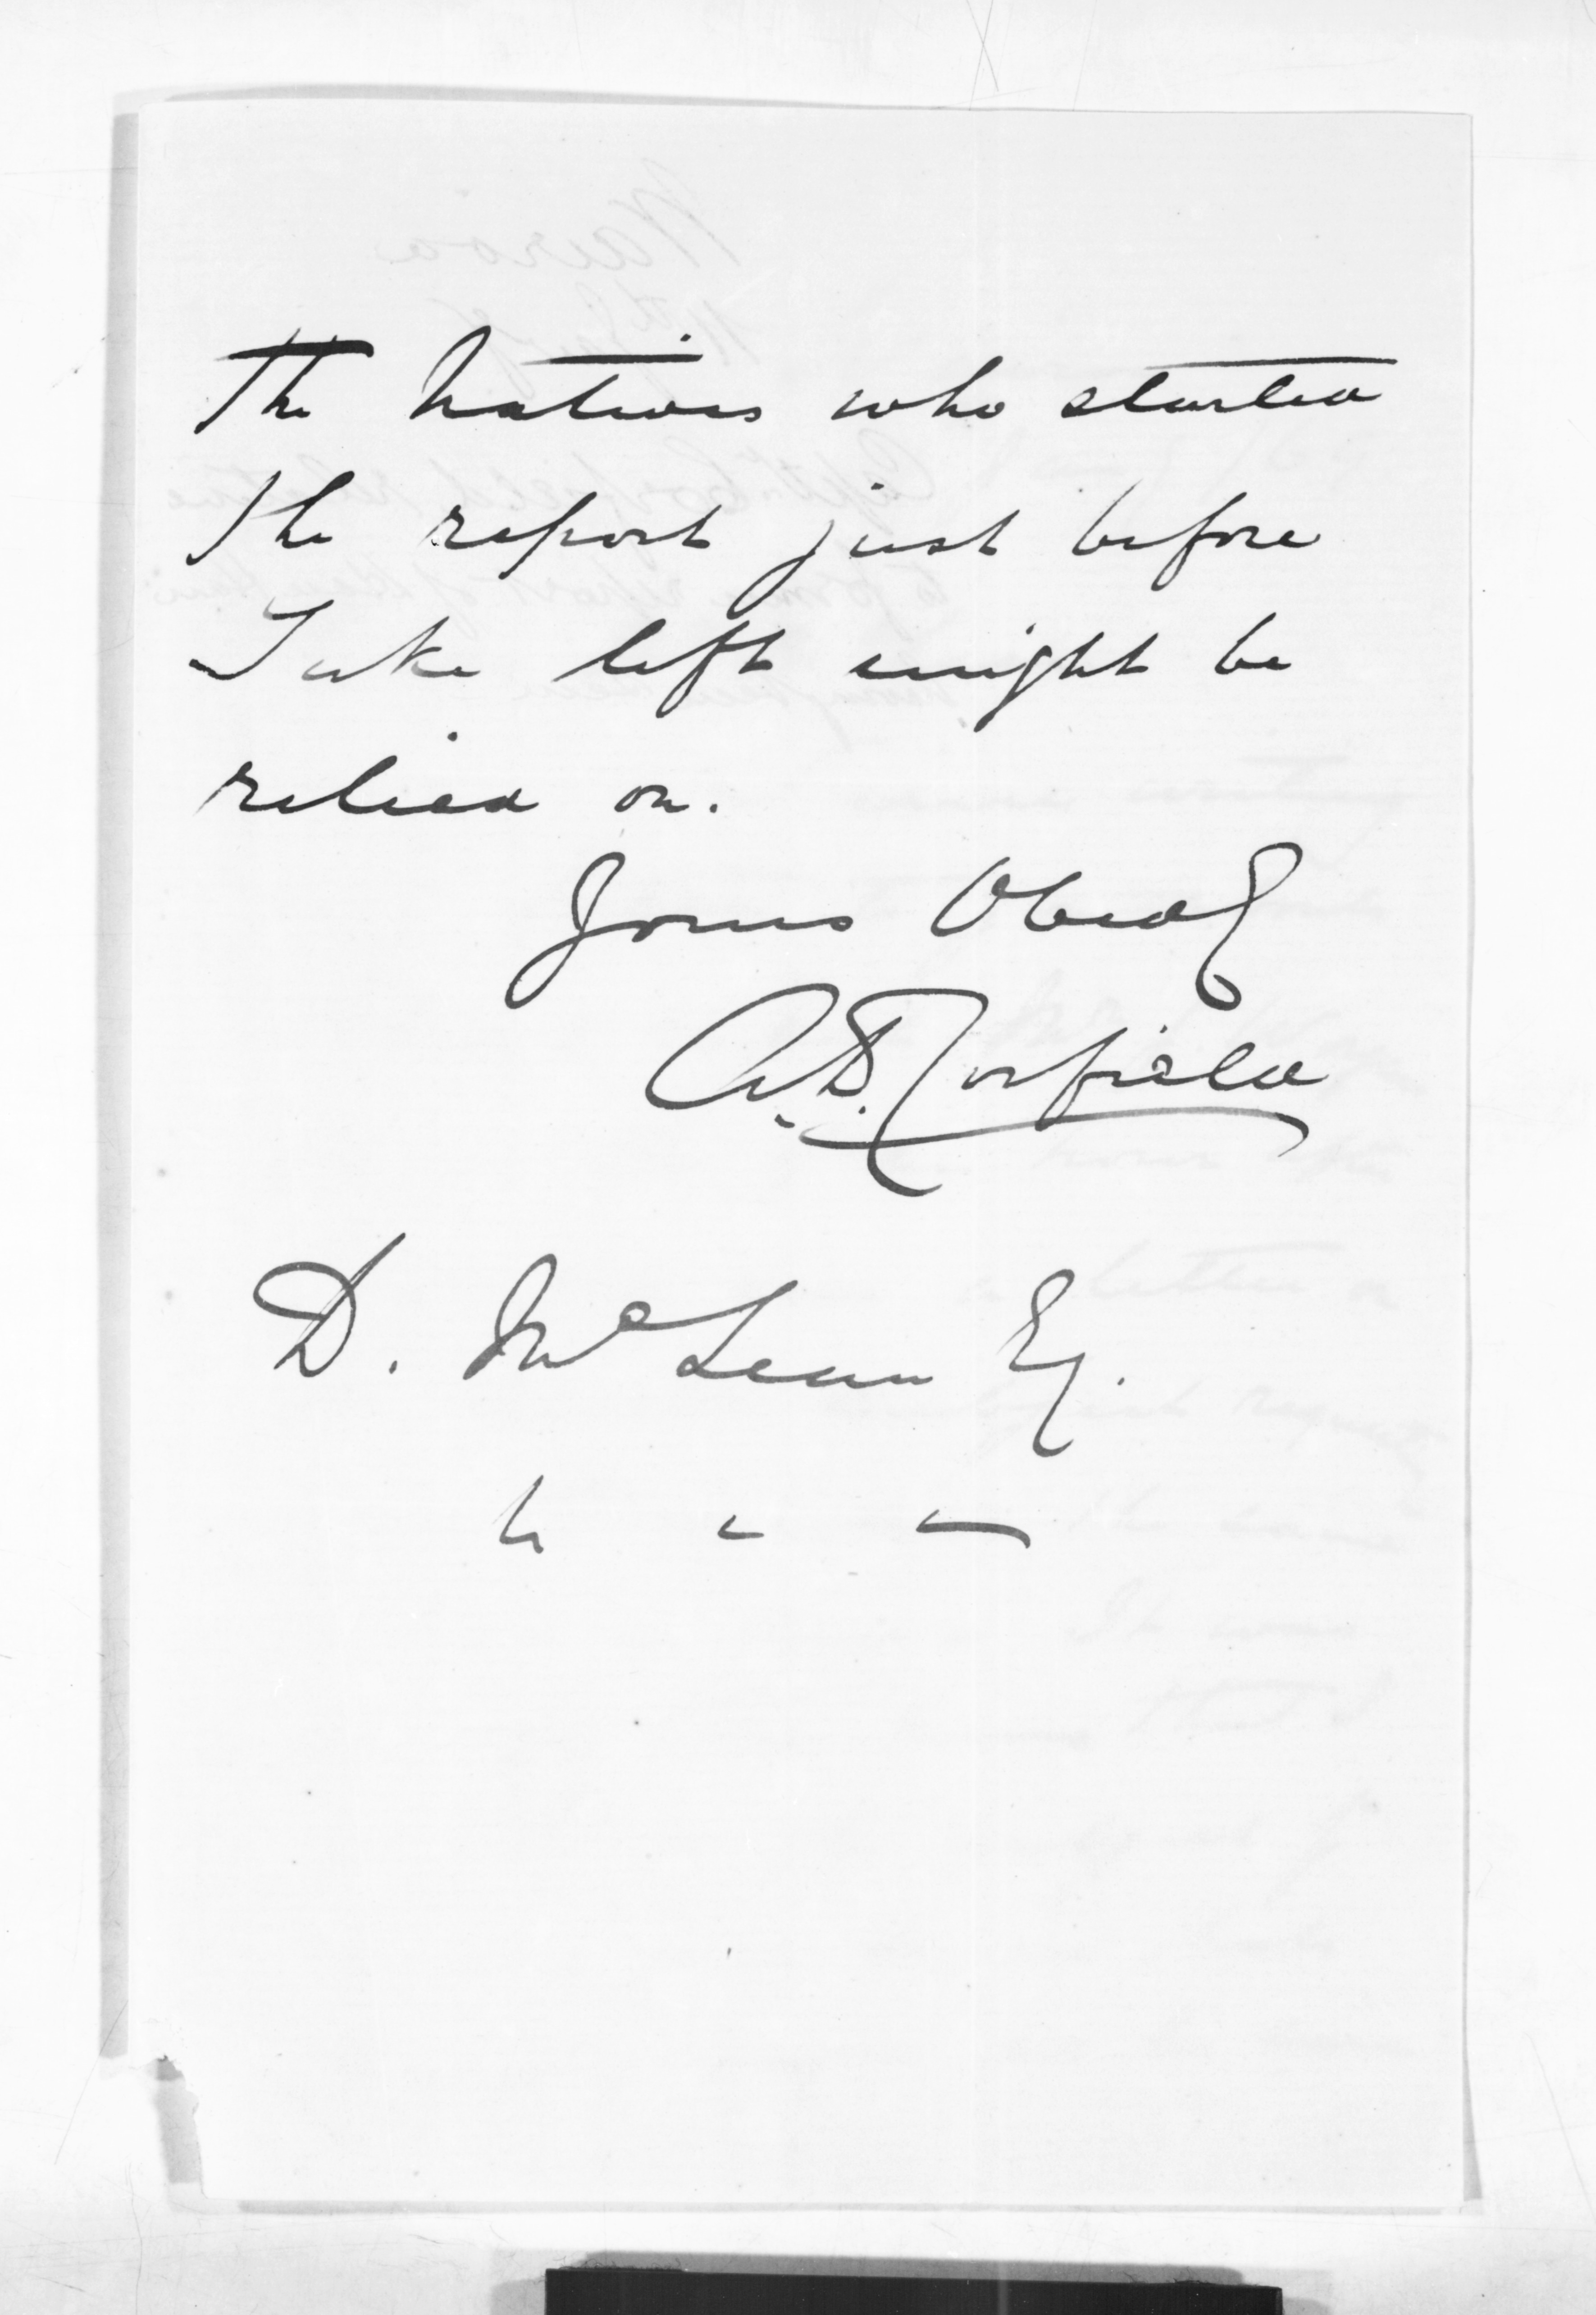 The Natives who started
the report just before
Tuke left might be
relied on.
Yours Obedy
A.D. Corfield
D. McLean Eq.